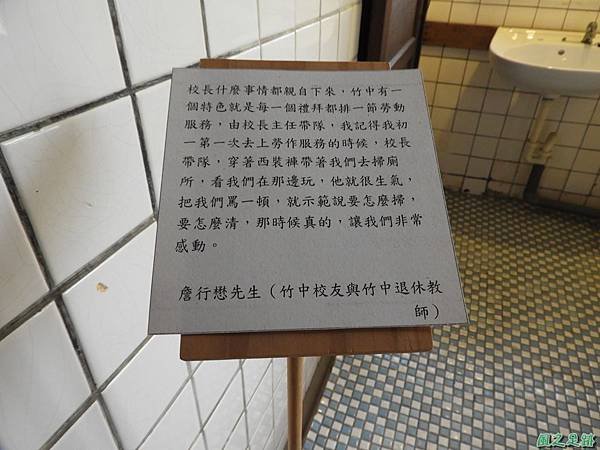 校長什麼事情都親自下來，竹中有一
個特色就是每一個禮拜都排一節勞動
服務，由校長主任帶隊，我記得我初
一第一次去上勞作服務的時候，校長
帶隊，穿著西裝褲帶著我們去掃廁
所，看我們在那邊玩，他就很生氣，
把我們罵一頓，就示範說要怎麼掃，
要怎麼清，那時候真的，讓我們非常
感動。
詹行懋先生（竹中校友與竹中退休教
師）